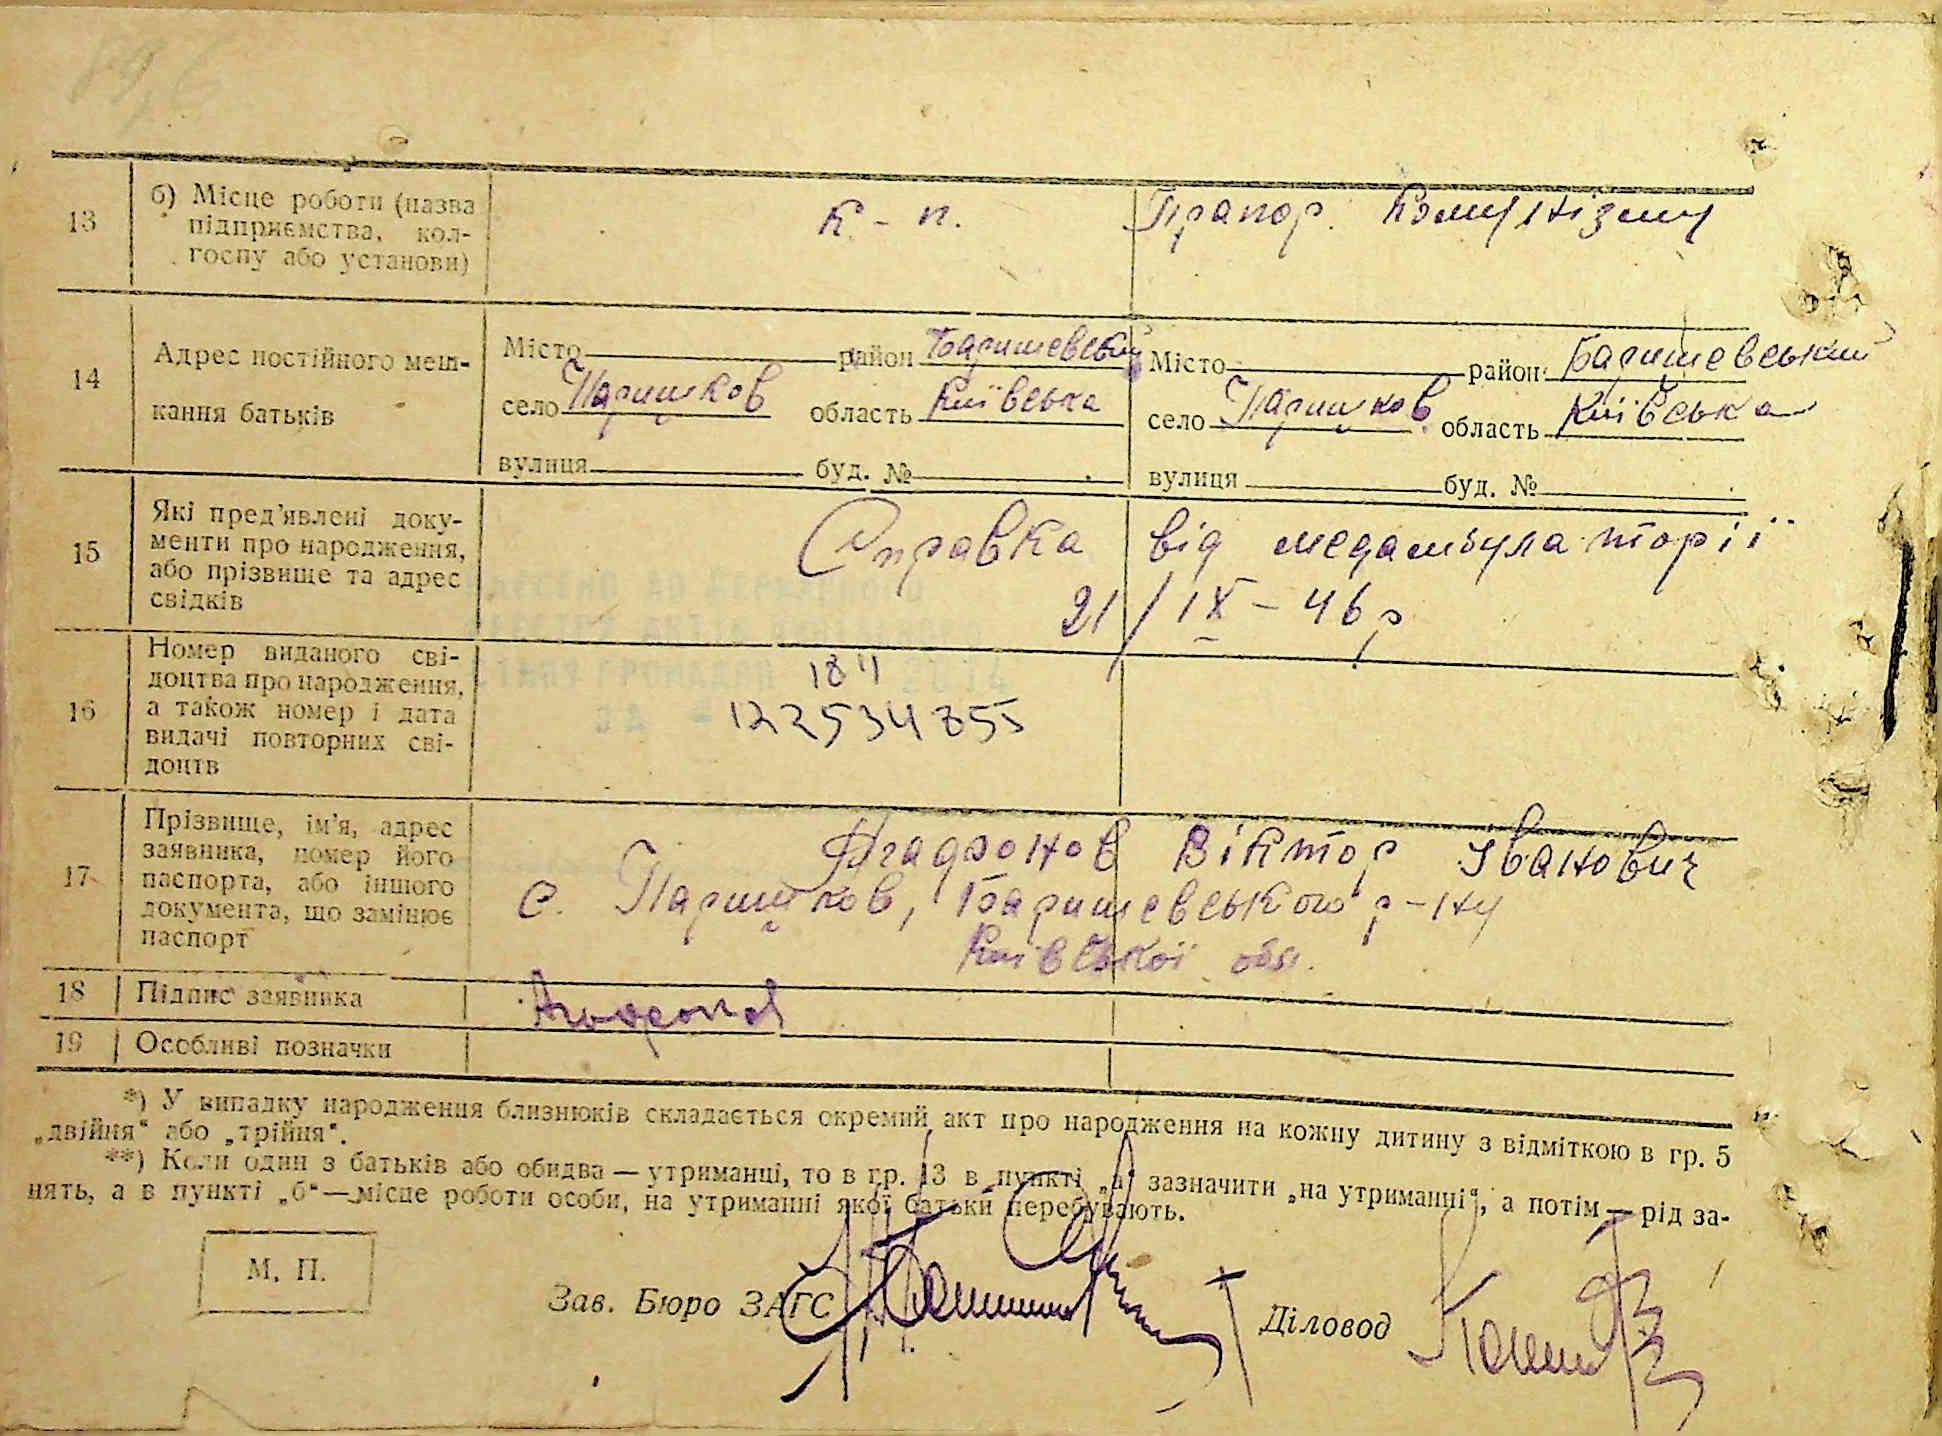 13
б) Місце роботи (назва
підприємства, кол-
госпу або установи)
к - п. Прапор. Комунізму
14
Адрес постійного меш-
кання батьків
Місто район Баришевський
село Паришков область Київська
вулиця буд. №
Місто район Баришевський
село Паришков область Київська
вулиця буд. №
15
Які пред'явлені доку-
менти про народження,
або прізвище та адрес
свідків
Справка від медамбулаторії
21/IX - 46 р
16
Номер виданого сві-
доцтва про народження,
а також номер і дата
видачі повторних сві-
доцтв
184
122534855
17
Прізвище, ім'я, адрес
заявника, номер його
паспорта, або іншого
документа, що замінює
паспорт
Агафонов Віктор Іванович
с. Паришков, Баришевського р-ну
Київської обл.
18 Підпис заявника
Агафонов
19 Особливі позначки
*) У випадку народження близнюків складається окремий акт про народження на кожну дитину з відміткою в гр. 5
„двійня" або „трійня".
**) Коли один з батьків або обидва — утриманці, то в гр. 13 в пункті „а" зазначити „на утриманні", а потім — рід за-
нять, а в пункті „б" — місце роботи особи, на утриманні якої батьки перебувають.
М. П.
Зав. Бюро ЗАГС
Діловод